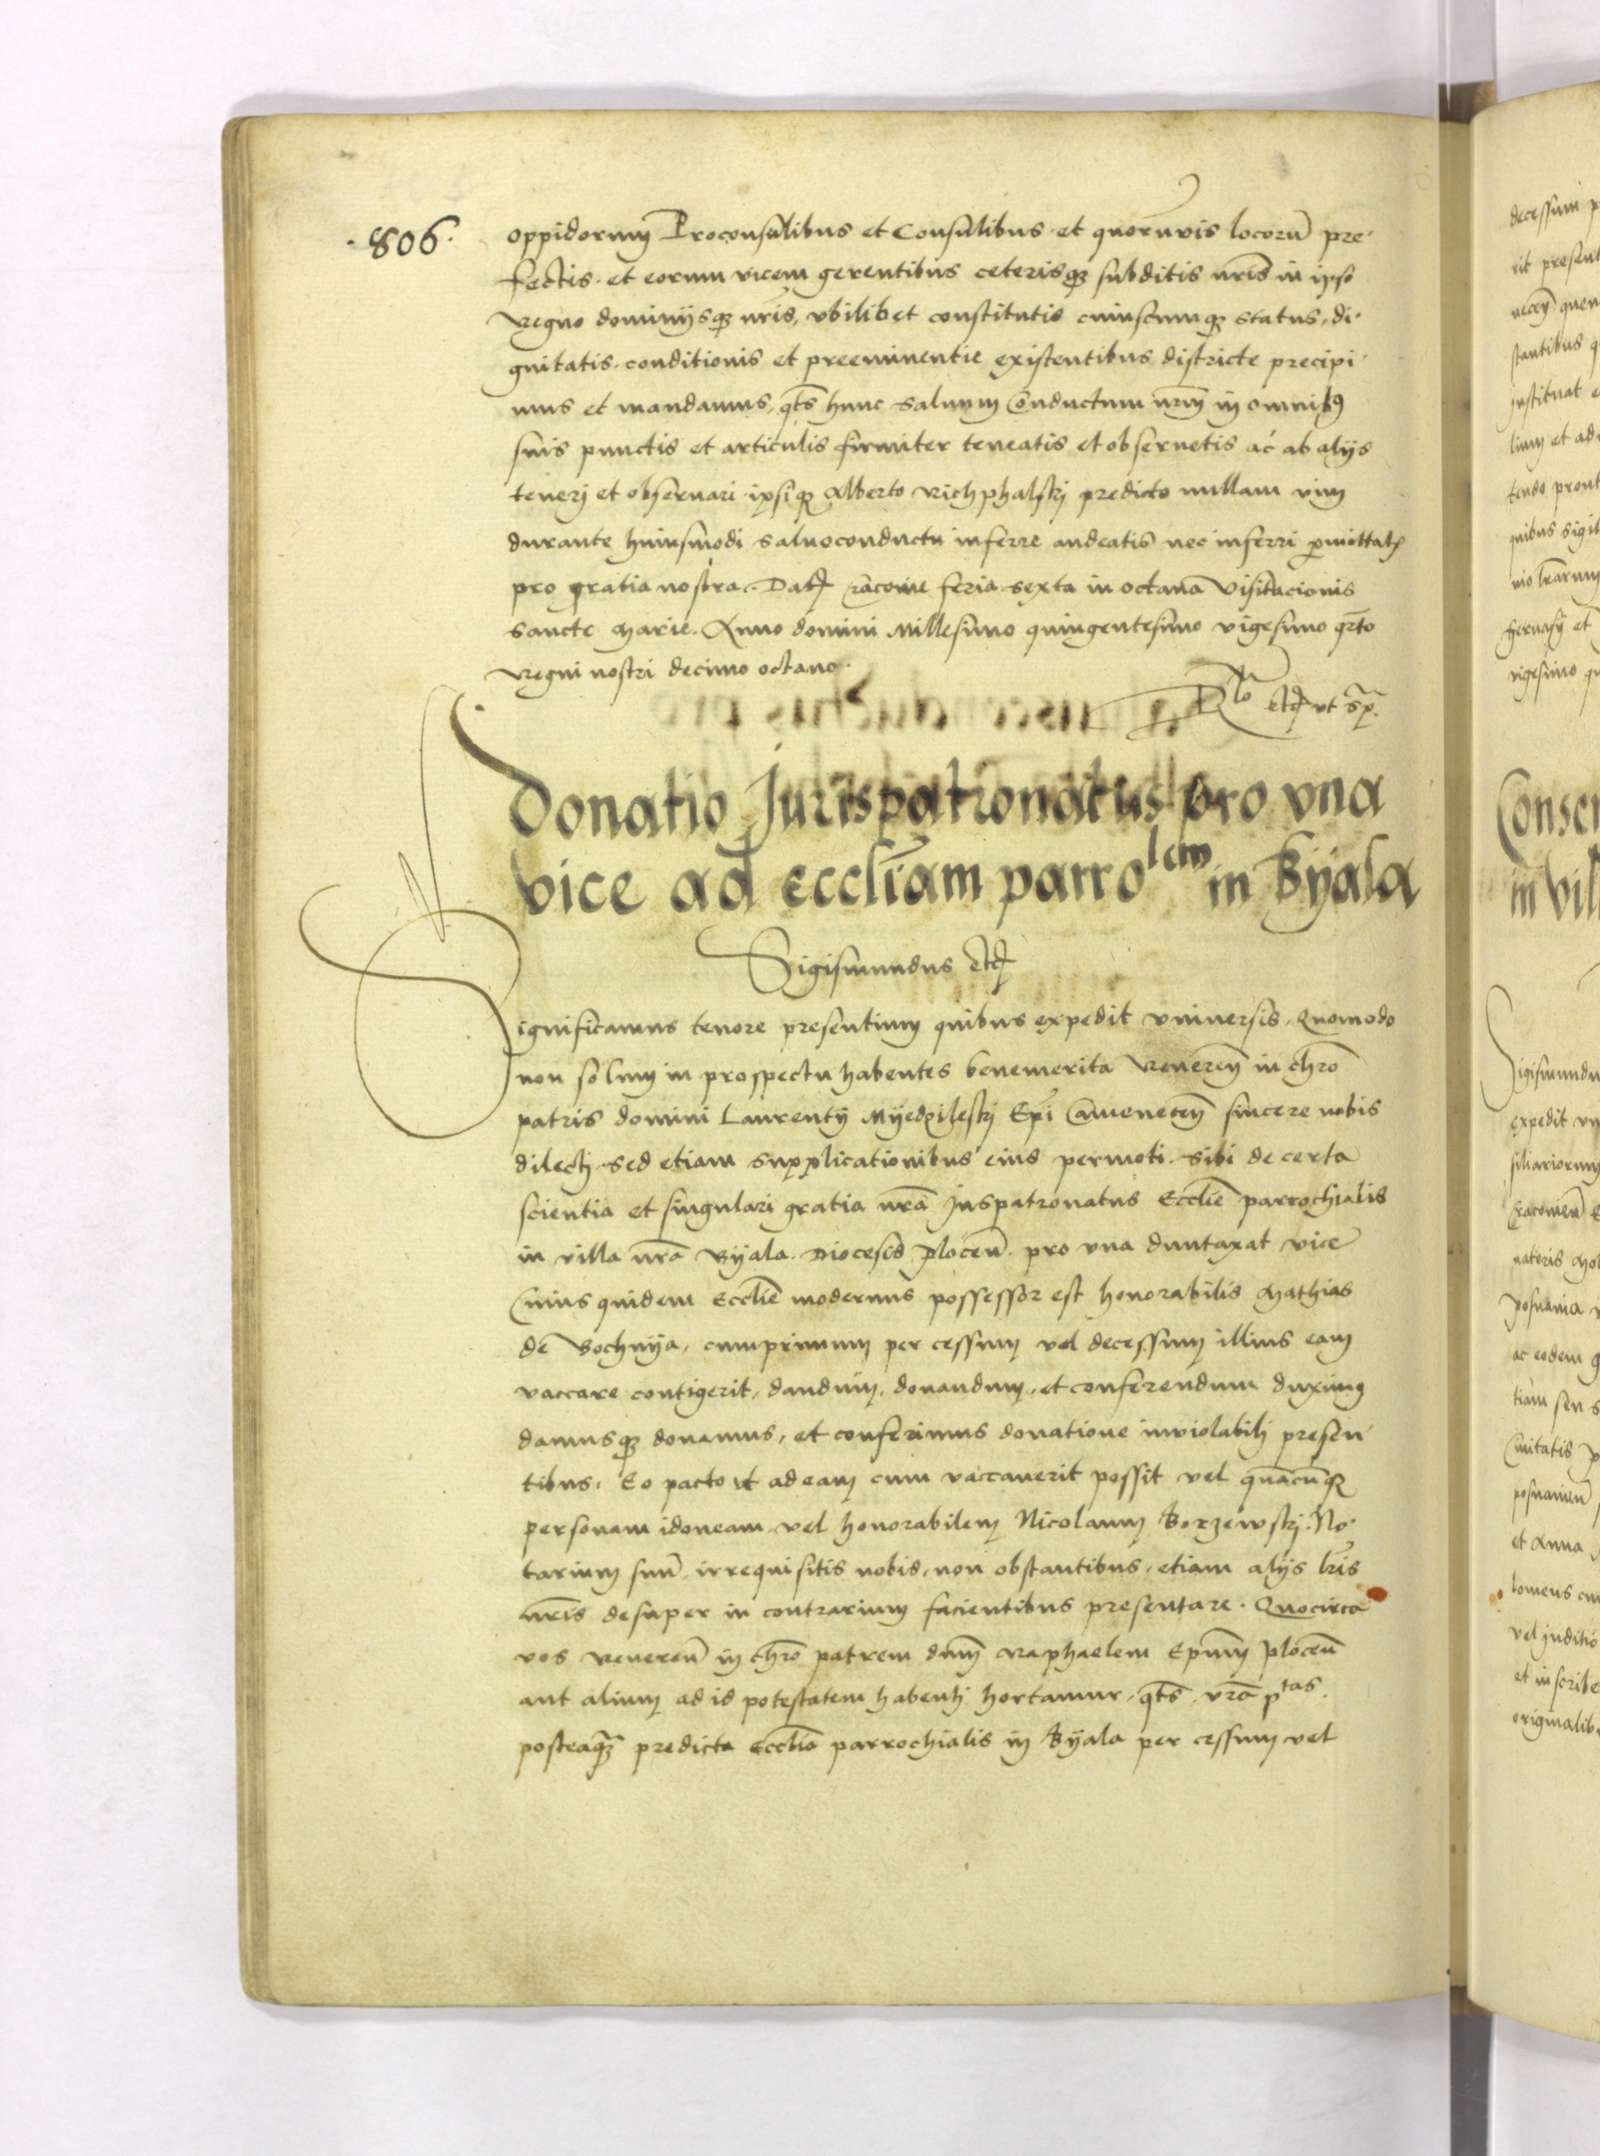 ·806·
oppidorum Proconsulibus et Consulibus et quorūvis locorū pre-
fectis et eorum vicem gerentibus ceterisqȝ subditis nr̄is in ipso
Regno dominijsqȝ nr̄is, vbilibet constitutis cuiuscumqȝ status, di-
gnitatis conditionis et preeminentie existentibus districte precipi-
mus et mandamus, qt̄s hunc saluum Conductum nr̄m in omnibꝰ
suis punctis et articulis firmiter teneatis et obseruetis ac ab alijs
tenerj et obseruari ipsiqȝ Alberto Richphalskj predicto nullam vim
durante huiusmodi saluoconductu inferre audeatis nec inferri ꝑmittatꝭ
pro gratia nostra. Datꝭ Cracouie feria sexta in octaua Visitacionis
sancte Marie. Anno domini Millesimo quingentesimo vigesimo qr̄to
Regni nostri decimo octauo.
Rlo etcꝭ vt sp̄.
Donatio Jurispatronatus pro vna
vice ad eccl̄iam parrolem in Byala
Sigismundus etcꝭ
Significamus tenore presentium quibus expedit vniuersis, Quomodo
non solum in prospectu habentes benemerita Reueren̄ in chr̄o
patris domini Laurentij Myedzileskj Ep̄i Camenecen̄ sincere nobis
dilectj sed etiam supplicationibus eius permoti sibi de certa
scientia et singulari gratia nr̄a Juspatronatus Eccl̄ie parrochialis
in villa nr̄a Byala Diocesis Plocen̄ pro vna duntaxat vice
Cuius quidem Eccl̄ie modernus possessor est honorabilis Mathias
de Bochnya, cumprimum per cessum vel decessum illius eam
vaccare contigerit, dandum, donandum, et conferendum duximꝰ
damusqȝ donamus, et conferimus donatione inviolabilj presen-
tibus, Eo pacto vt ad eam cum vaccauerit possit vel quācūqȝ
personam idoneam vel honorabilem Nicolaum Borzewskj No-
tarium suū irrequisitis nobis, non obstantibus, etiam alijs lr̄is
nr̄is desuper in contrarium facientibus presentare. Quocirca
vos Reueren̄ in chr̄o patrem dn̄m Raphaelem Ep̄um Plocen̄
aut alium ad id potestatem habentj hortamur, qt̄s vr̄a ptas
posteaqȝ predicta Eccl̄ia parrochialis in Byala per cessum vel